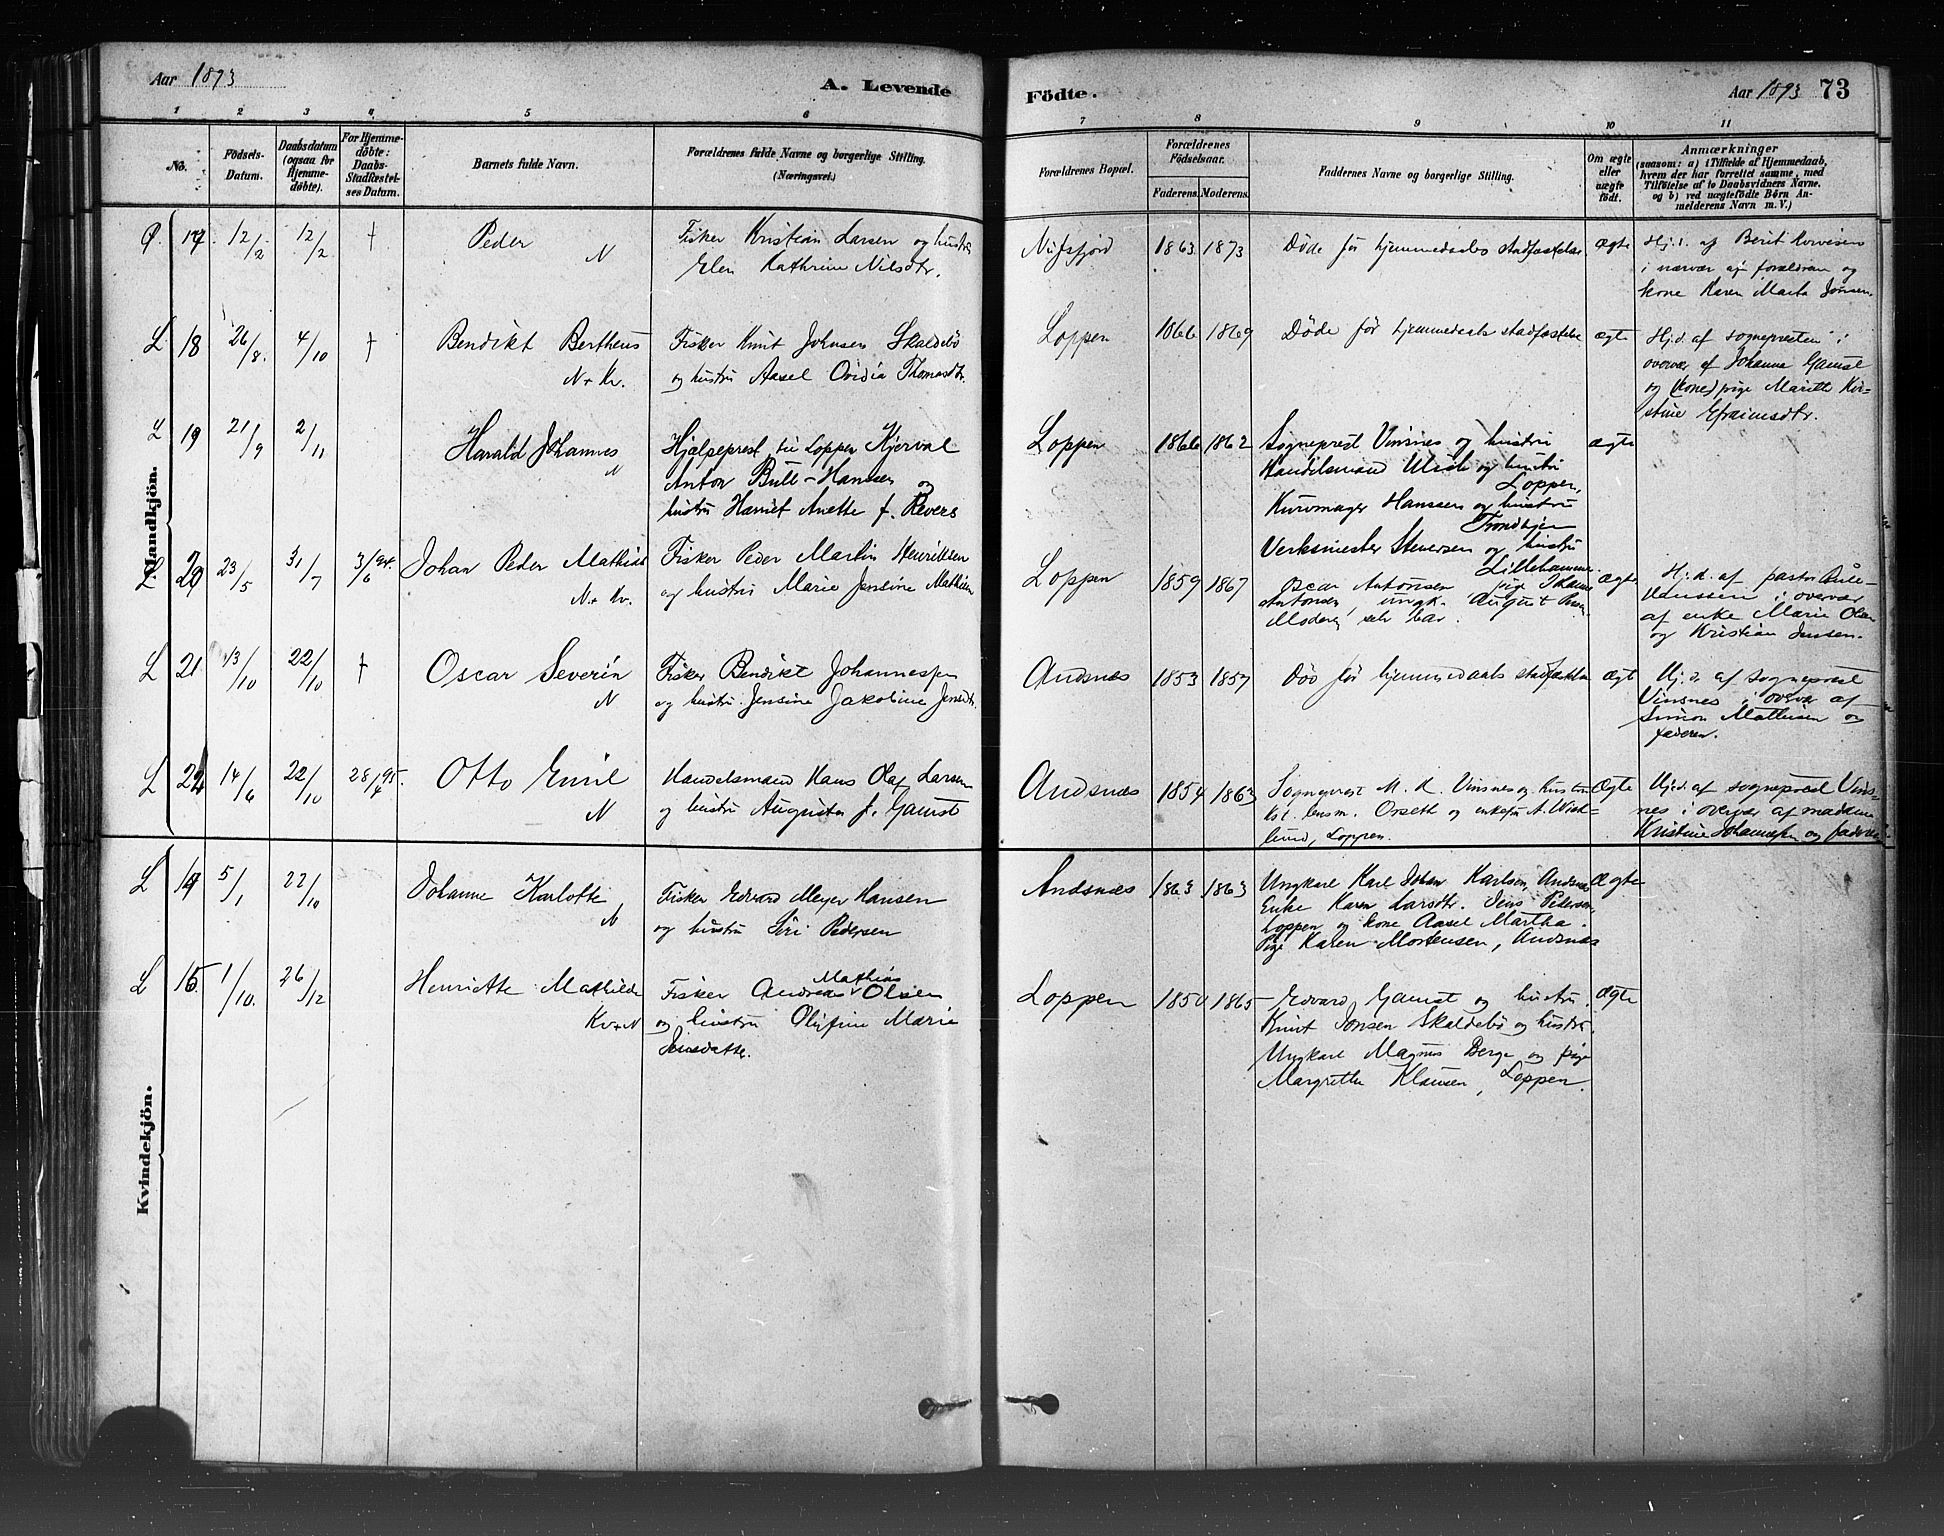 Aar 1893
A. Levende
Födte.
Aar 1893 73
1 2 3 4 5 6 7 8 9 10 11
No.
Födsels-
Datum.
Daabsdatum
(ogsaa for
Hjemme-
döbte).
For Hjemme-
döbte:
Daabs-
Stadfæstel-
ses Datum.
Barnets fulde Navn.
Forældrenes fulde Navne og borgerlige Stilling.
(Næringsvei.)
Forældrenes Bopæl.
Forældrenes
Födselsaar.
Faderens. Moderens.
Faddernes Navne og borgerlige Stilling.
Om ægte
eller
uægte
født.
Anmærkninger
(saasom: a) i Tilfælde af Hjemmedaab,
hvem der har forrettet samme, med
Tilföielse af to Daabsvidners Navne.
og b) ved uægtefödte Börn An-
melderens Navn m. V.)
Mandkjön.
17 12/2 12/2 †
Peder
N
Fisker Kristian Larsen og hustru
Elen Kathrine Nilsdtr.
1863 1873
Døde før hjemmedaabs stadfæstelse.
ægte
Hj.d. af Berit
i nærvær af forældrene og
kone Karen Marta Jonsen.
L 18 26/8. 4/10 †
Bendikt Bertheus
N + Kv.
Fisker Knut Johnsen Skaldebö
og hustru Aasel Ovidia Thomasdtr.
Loppen 1866 1869
Døde før hjemmedaabs stadfæstelse
ægte
Hj.d. af sognepresten i
overvær af Johanne Gamst
og (kone) pige Marith Kir-
stine Efraimsdtr.
L 19 21/9 2/11
Harald Johannes
N
Hjælpeprest til Loppen Kjerval
Anton Bull-Hanssen og
hustru Harriet Anette f. Revers
Loppen 1866 1862
Sogneprest Vinsnes og hustru
Handelsmand og hustru
Loppen,
Kurvmager Hanssen og hustru
Trondhjem
Verksmester Stenersen og hustru
Lillehammer
ægte
L 20 23/5 31/7 3/6 94.
Johan Peder Mathias
N + Kv.
Fisker Peder Martin Henriksen
og hustru Marie Jensine Mathisen
Loppen 1859 1867
Oscar Antonsen pige
Antonsen, ungk. August
Moderen selv bar.
ægte
Hj.d. af pastor Bull-
Hanssen i overvær
af enke Marie Olsen
og Kristian Jensen.
L 21 13/10 22/10 †
Oscar Severin
N
Fisker Bendikt Johannessen
og hustru Jensine Jakobine Jensdtr.
Andsnæs 1853 1857
Død før hjemmedaabs stadfæstelse
ægt
Hj.d. af sogneprest
Vinsnes i overvær af
Simon Mathisen og
faderen.
L 22 14/6 22/10 28/4 95.
Otto Emil
N
Handelsmand Hans Olaf Larsen
og hustru Augusta f. Gamst
Andsnæs 1854 1863
Sogneprest M. K. Vinsnes og hustru
Kst. lensm. Orseth og enkefru A. Wick-
lund, Loppen.
Ægte
Hj.d. af sogneprest Vins-
nes i overvær af madam
Kristine Johannessen og faderen.
Kvindekjön.
L 14 5/1 22/10
Johanne Karlotte
N
Fisker Edvard Meyer Hansen
og hustru Siri Pedersen
Andsnæs 1863 1863
Ungkarl Karl Johan Karlsen, Andsnæs
Enke Karen Larsdtr. Jens Pedersen,
Loppen og kone Aasel Martha.
Pige Karen Mortensen, Andsnæs
Ægte
L 15 1/10. 26/12
Henriette Mathilde
Kv + N
Fisker Andreas Mathias Olsen
og hustru Olufine Marie
Jensdatter.
Loppen 1850 1865
Edvard Gamst og hustru.
Knut Jonsen Skaldebö og hustru.
Ungkarl Magnus Berge og pige
Margrethe Klausen, Loppen.
Ægte